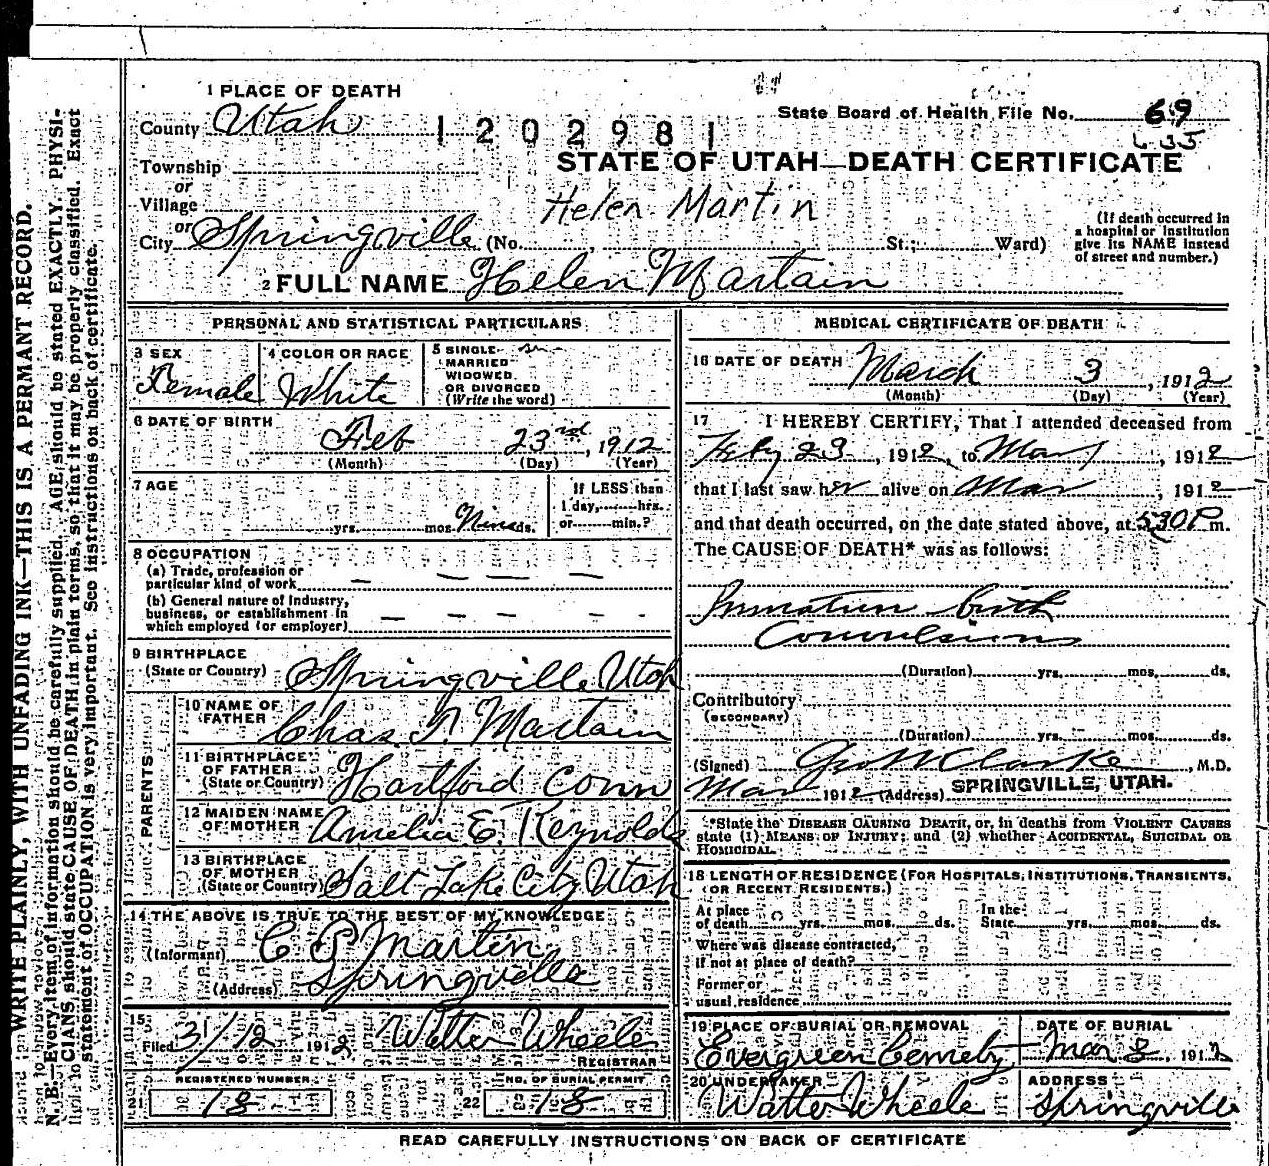 1 PLACE OF DEATH
County Utah
1202981
State Board of Health File No. 69
635
STATE OF UTAH—DEATH CERTIFICATE
Township
or
Village
or
City Springville (No. , St.; Ward)
Helen Martin
(If death occurred in
a hospital or institution
give its NAME instead
of street and number.)
2 FULL NAME Helen Martain
PERSONAL AND STATISTICAL PARTICULARS
3 SEX
Female
4 COLOR OR RACE
White
5 SINGLE
MARRIED
WIDOWED
OR DIVORCED
(Write the word)
6 DATE OF BIRTH
Feb 23rd, 1912
(Month) (Day) (Year)
7 AGE
yrs. mos. Nine ds.
If LESS than
1 day, hrs.
or min.?
8 OCCUPATION
(a) Trade, profession or
particular kind of work — — — —
(b) General nature of Industry,
business, or establishment in
which employed (or employer) — — — - -
9 BIRTHPLACE
(State or Country) Springville Utah
PARENTS
10 NAME OF
FATHER Chas. P. Martain
11 BIRTHPLACE
OF FATHER
(State or Country) Hartford Conn
12 MAIDEN NAME
OF MOTHER Amelia E. Reynolds
13 BIRTHPLACE
OF MOTHER
(State or Country) Salt Lake City Utah
14 THE ABOVE IS TRUE TO THE BEST OF MY KNOWLEDGE
(Informant) C P Martin
(Address) Springville
15
Filed 3/12 1912 Walter Wheeler
REGISTRAR
REGISTERED NUMBER
21 18
NO. OF BURIAL PERMIT
22 18
MEDICAL CERTIFICATE OF DEATH
16 DATE OF DEATH March 3, 1912
(Month) (Day) (Year)
17 I HEREBY CERTIFY, That I attended deceased from
Feby 23, 1912, to Mar 1, 1912
that I last saw her alive on Mar, 1912
and that death occurred, on the date stated above, at 530 P m.
The CAUSE OF DEATH* was as follows:
Premature birth
Convulsions
(Duration) yrs. mos. ds.
Contributory
(SECONDARY)
(Duration) yrs. mos. ds.
(Signed) Geo W Clarke, M.D.
Mar 1912 (Address) SPRINGVILLE, UTAH.
*State the DISEASE CAUSING DEATH, or, in deaths from VIOLENT CAUSES
state (1) MEANS OF INJURY; and (2) whether ACCIDENTAL, SUICIDAL OR
HOMICIDAL.
18 LENGTH OF RESIDENCE (FOR HOSPITALS, INSTITUTIONS, TRANSIENTS,
(OR RECENT RESIDENTS.)
At place In the
of death yrs. mos. ds. State yrs. mos. ds.
Where was disease contracted,
If not at place of death?
Former or
usual residence
19 PLACE OF BURIAL OR REMOVAL
Evergreen Cemetery
DATE OF BURIAL
Mar 3, 1912
20 UNDERTAKER
Walter Wheeler
ADDRESS
Springville
READ CAREFULLY INSTRUCTIONS ON BACK OF CERTIFICATE
WRITE PLAINLY, WITH UNFADING INK—THIS IS A PERMANT RECORD.
N. B.—Every item of information should be carefully supplied. AGE should be stated EXACTLY. PHYSI-
CIANS should state CAUSE OF DEATH in plain terms, so that it may be properly classified. Exact
statement of OCCUPATION is very important. See instructions on back of certificate.